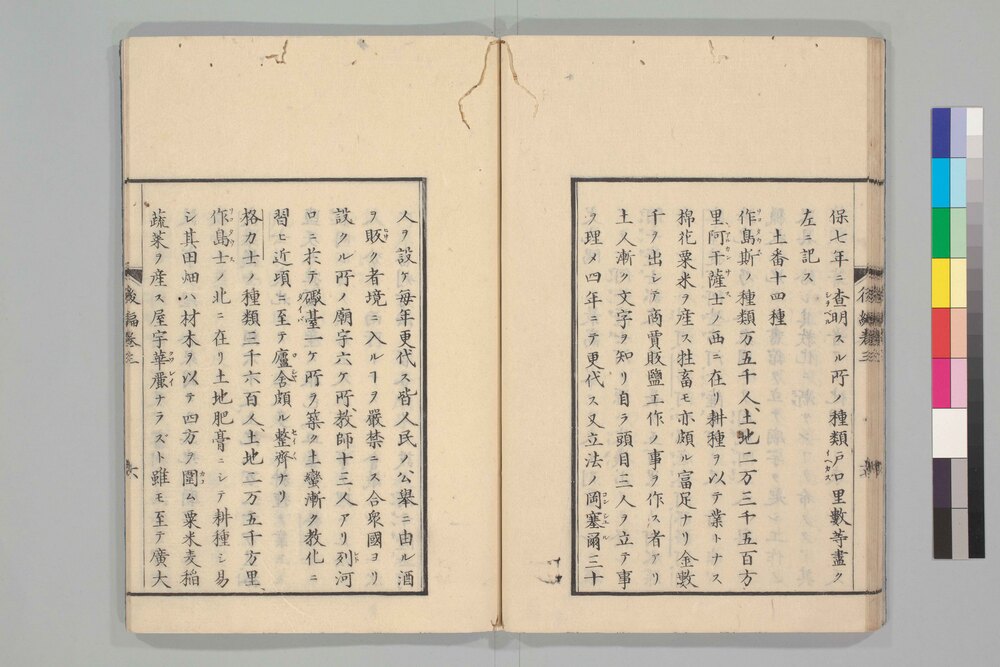 保七年ニ査明スル所ノ種類戸口里數等盡ク
左ニ記ス
土番十四種
作島斯ノ種類万五千人土地二万三千五百方
里阿干薩士ノ西ニ在リ耕種ヲ以テ業トナス
棉花粟米ヲ産ス牲畜モ亦頗ル富足ナリ金數
千ヲ出シテ商賈販鹽工作ノ事ヲ作ス者アリ
土人漸ク文字ヲ知リ自ラ頭目三人ヲ立テ事
ヲ理メ四年ニテ更代ス又立法ノ岡塞爾三十
人ヲ設ケ毎年更代ス皆人民ノ公舉ニ由ル酒
ヲ販ク者境ニ入ルヿヲ嚴禁ニス合衆國ヨリ
設クル所ノ廟宇六ケ所教師十三人アリ列河
ロニ於テ磤䑓一ケ所ヲ築ク土蠻漸ク教化ニ
習ヒ近頃ニ至テ廬舍頗ル整齊ナリ
格力士ノ種類三千六百人土地二万五千方里
作島士ノ北ニ在リ土地肥膏ニシテ耕種シ易
シ其田畑ハ材木ヲ以テ四方ヲ圍ム粟米麦稲
蔬菜ヲ産ス屋宇華麗ナラズト雖モ至テ廣大
後編巻三
六